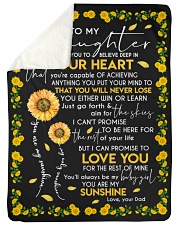 TO MY
Daughter
YOU TO
BELIEVE DEEP IN
UR HEART
That you're capable of achieving
ANYTHING YOU PUT YOUR MIND TO
THAT YOU WILL NEVER LOSE
YOU EITHER WIN OR LEARN
Just go forth &
aim for the skies
I CAN'T PROMISE
TO BE HERE FOR
the rest of your life
BUT I CAN PROMISE TO
LOVE YOU
FOR THE REST OF MINE
You'll always be my baby girl
YOU ARE MY
SUNSHINE
Love, your Dad